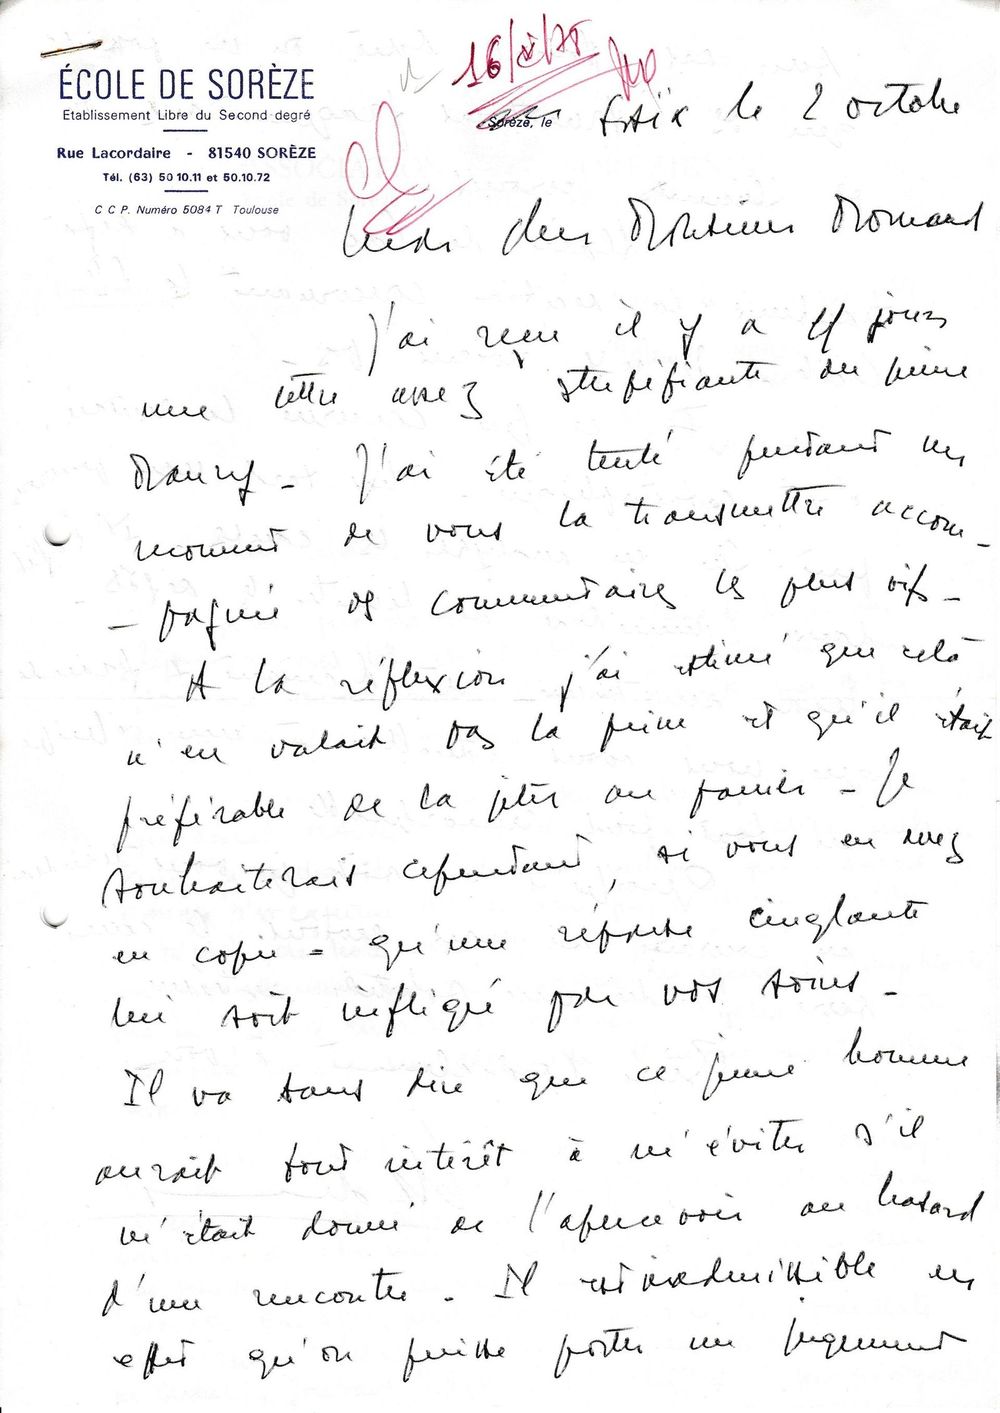 ÉCOLE DE SORÈZE
Etablissement Libre du Second degré
Rue Lacordaire - 81540 SORÈZE
Tél. (63) 50 10.11 et 50.10.72
C C P. Numéro 5084 T Toulouse
Sorèze, le
le 2 octobre
cher Monsieur
J'ai reçu il y a 11 jours
une lettre assez stupéfiante du jeune
Maury - J'ai été tenté pendant un
moment de vous la transmettre accom-
- pagnée de commentaires les plus vifs -
A la réflexion j'ai estimé que celà
n'en valait pas la peine et qu'il était
préférable de la jeter au panier - Je
souhaiterais cependant, si vous en avez
eu copie - qu'une réponse cinglante
lui soit infligée par vos soins -
Il va sans dire que ce jeune homme
aurait tout intérêt à m'éviter s'il
m'était donné de l'apercevoir au hasard
d'une rencontre - Il est inadmissible en
effet qu'on puisse porter un jugement